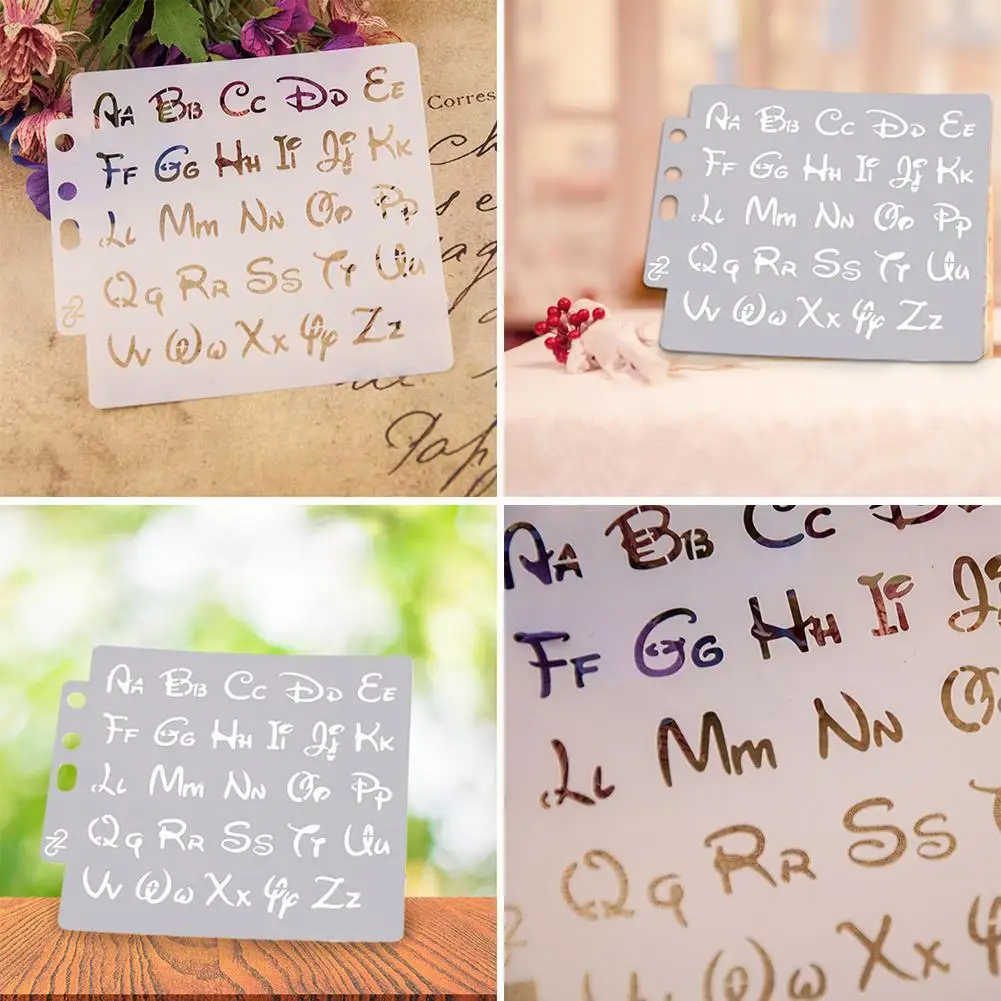 Aa Bb Cc Dd Ee
Ff Gg Hh Ii Jj Kk
Ll Mm Nn Oo Pp
Qq Rr Ss Tt Uu
Vv Ww Xx Yy Zz
Corres
Pap
Aa Bb Cc Dd Ee
Ff Gg Hh Ii Jj Kk
Ll Mm Nn Oo Pp
Qq Rr Ss Tt Uu
Vv Ww Xx Yy Zz
Aa Bb Cc Dd Ee
Ff Gg Hh Ii Jj Kk
Ll Mm Nn Oo Pp
Qq Rr Ss Tt Uu
Vv Ww Xx Yy Zz
Aa Bb Cc D
Ff Gg Hh Ii Jj
Ll Mm Nn O
Qq Rr Ss
Vv Ww Xx